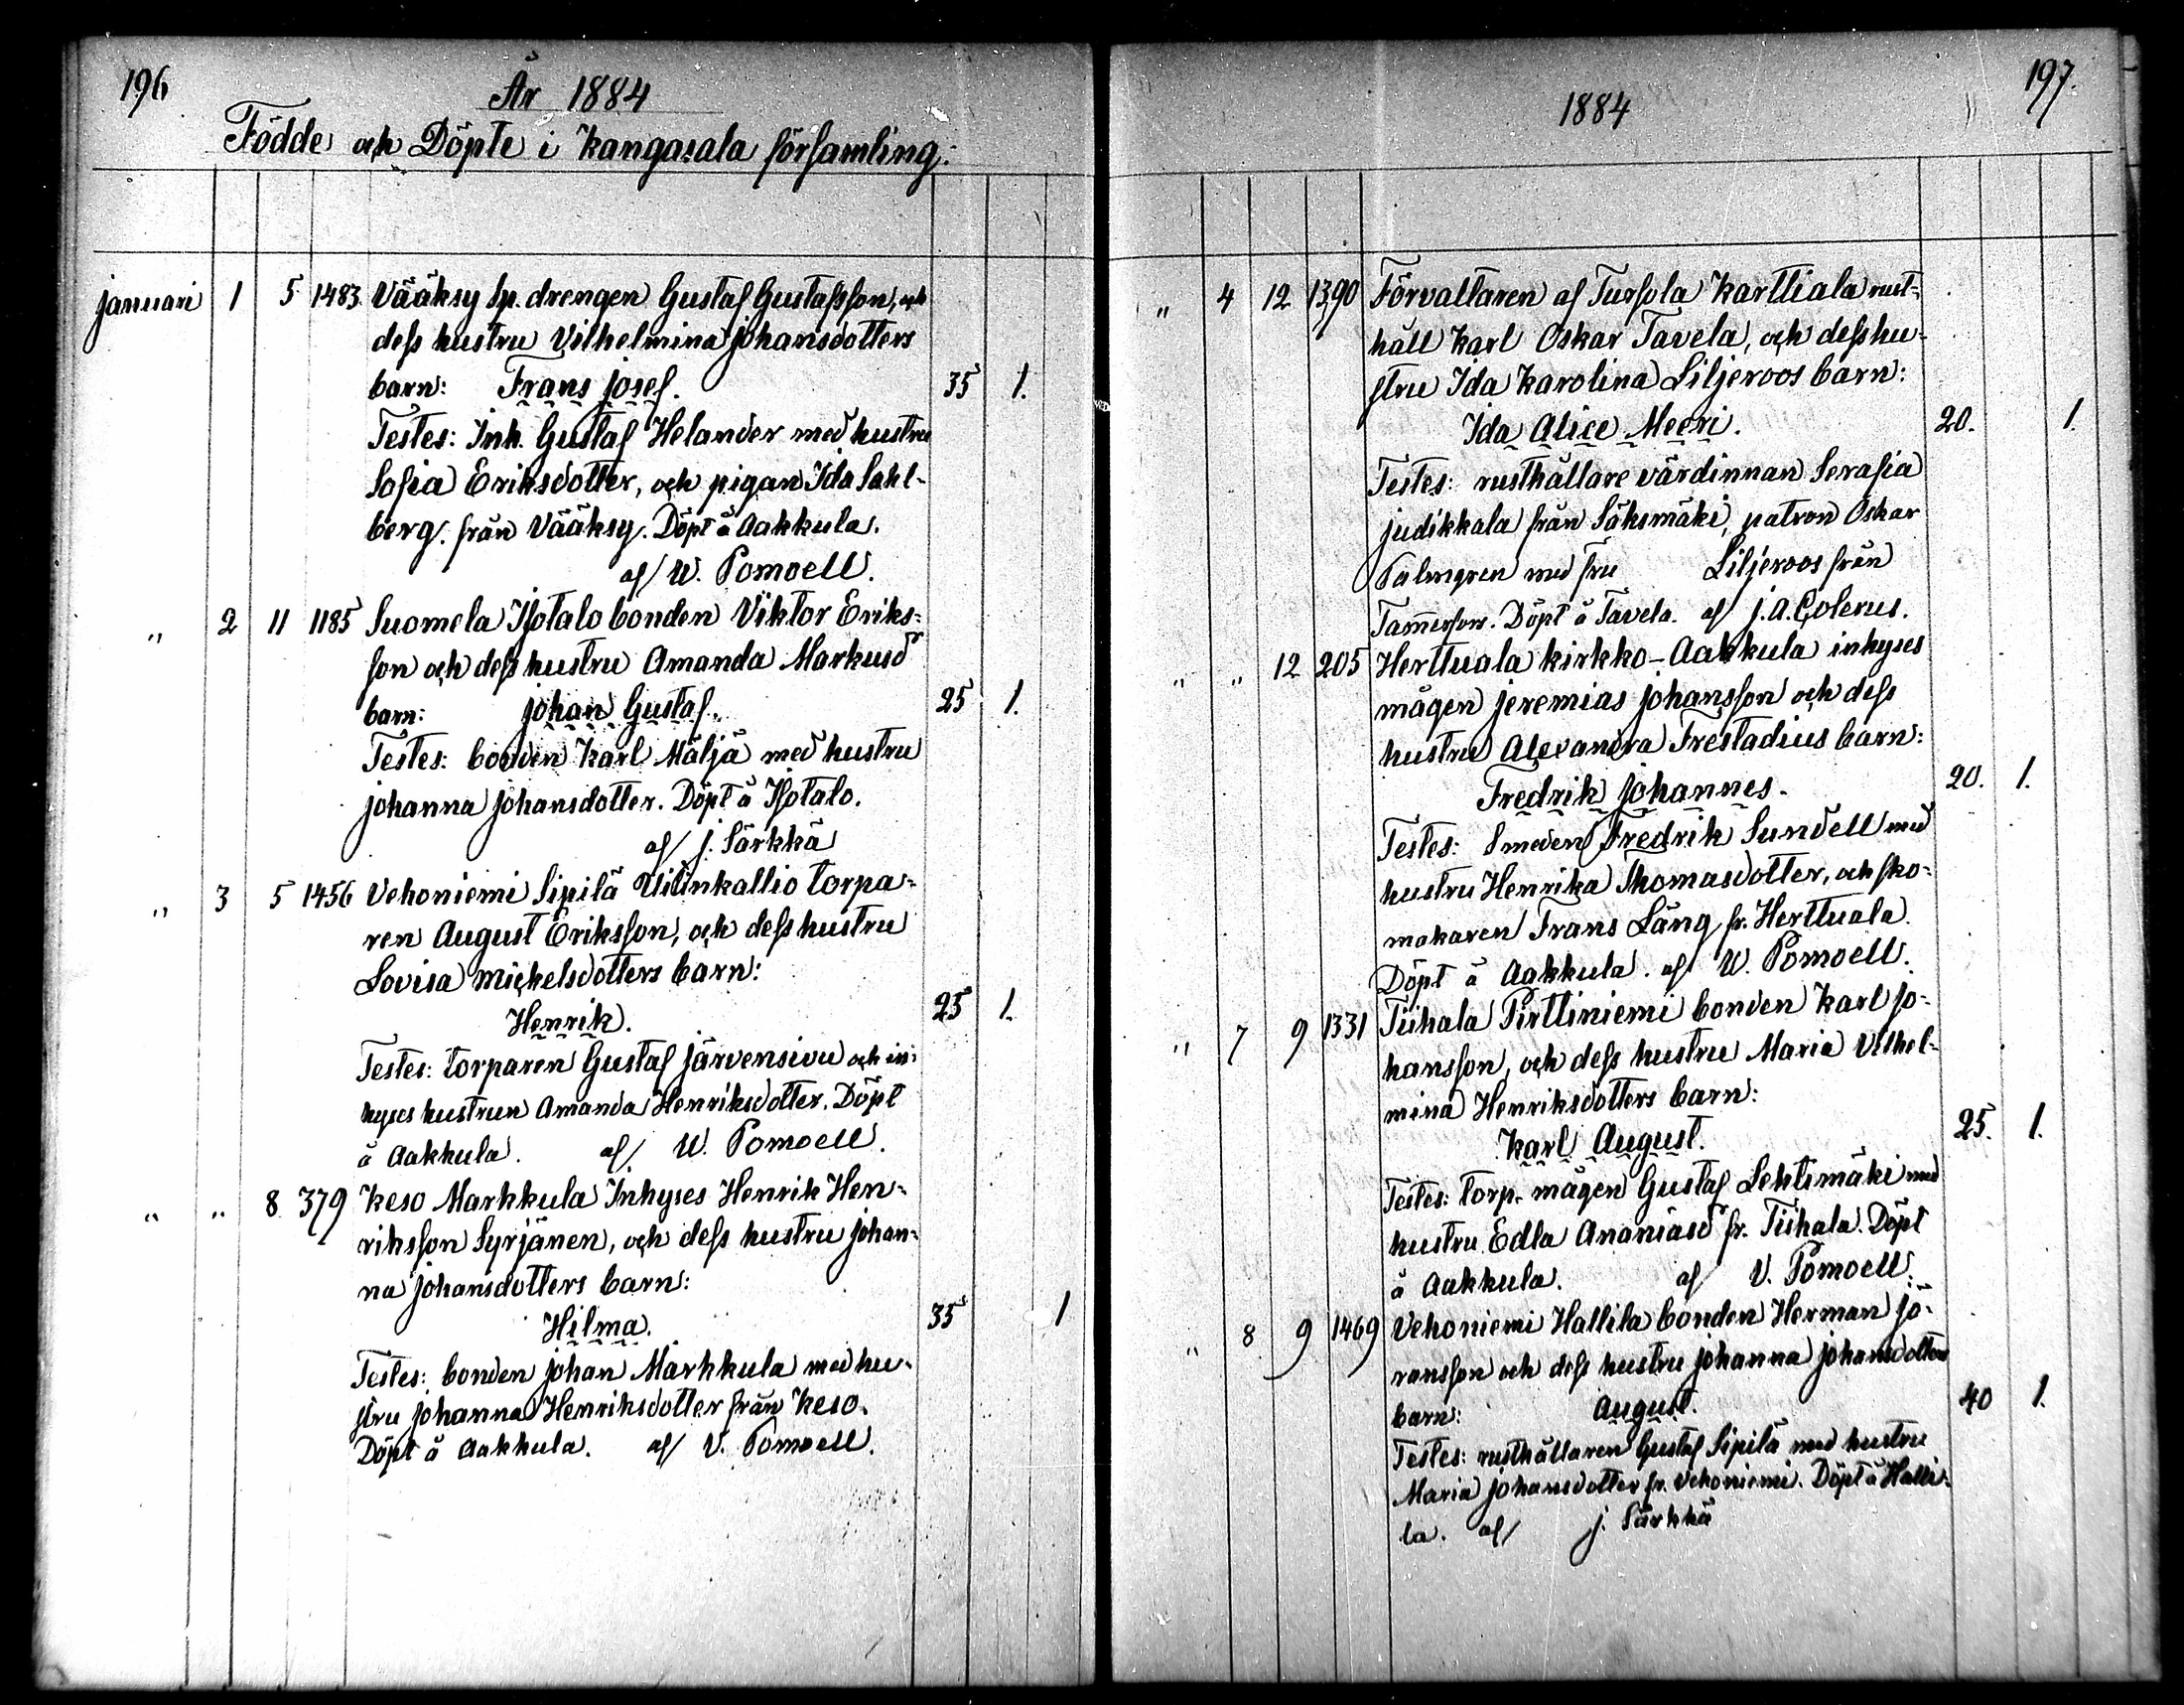 196
År 1884
Födde och Döpte i Kangasala församling.
januari 1 5 1483 Vääksy sp. drengen Gustaf Gustafsson, och
dess hustru Vilhelmina Johansdotters
barn: Frans Josef. 35 1.
Testes: Inh. Gustaf Helander med hustru
Sofia Eriksdotter, och pigan Ida Sahl-
berg. från Vääksy. Döpt å Aakkula.
af/ W. Pomoell.
" 2 11 1185 Suomela Isotalo bonden Viktor Eriks-
son och dess hustru Amanda Markusd
barn: Johan Gustaf. 25 1.
Testes: bonden Karl Mäljä med hustru
Johanna Johansdotter. Döpt å Isotalo.
af/ J. Särkkä
" 3 5 1456 Vehoniemi Sipilä torpa-
ren August Eriksson, och dess hustru
Lovisa Mickelsdotters barn:
Henrik. 25 1.
Testes: torparen Gustaf Järvensivu och in-
hyses hustrun Amanda Henriksdotter. Döpt
å Aakkula. af/ W. Pomoell.
" " 8 379 Keso Markkula Inhyses Henrik Hen-
riksson Syrjänen, och dess hustru Johan-
na Johansdotters barn:
Hilma. 35 1
Testes: bonden Johan Markkula med hu-
stru Johanna Henriksdotter från Keso.
Döpt å Aakkula. af/ V. Pomoell.
197.
1884
" 4 12 1390 Förvaltaren af Tursola Karttiala rust-
håll Karl Oskar Tavela, och dess hu-
stru Ida Karolina Liljeroos barn:
Ida Alice Meeri. 20. 1.
Testes: rusthållare värdinnan Serafia
Judikkala från Sääksmäki, patron Oskar
Palmgren med fru Liljeroos från
Tam̄erfors. Döpt å Tavela. af J. A. Golerus.
" " 12 205 Herttuala Kirkko-Aakkula inhyses
mågen Jeremias Johansson och dess
hustru Alexandra Frestadius barn:
Fredrik Johannes. 20. 1.
Testes: Smeden Fredrik Sundell med
hustru Henrika Thomasdotter, och sko-
makaren Frans Lång fr. Herttuala.
Döpt å Aakkula. af/ W. Pomoell.
" 7 9 1331 Tiihala Pirttiniemi bonden Karl Jo-
hansson, och dess hustru Maria Vilhel-
mina Henriksdotters barn:
Karl August. 25. 1.
Testes: torp. mågen Gustaf Lehtimäki med
hustru Edla Ananiasd fr. Tiihala. Döpt
å Aakkula. af V. Pomoell.
" 8 9 1469 Vehoniemi Hallila bonden Herman Jö-
ransson och dess hustru Johanna Johansdotters
barn: August. 40 1.
Testes: rusthållaren Gustaf Sipilä med hustru
Maria Johansdotter fr. Vehoniemi. Döpt å Halli-
la. af/ J. Särkkä